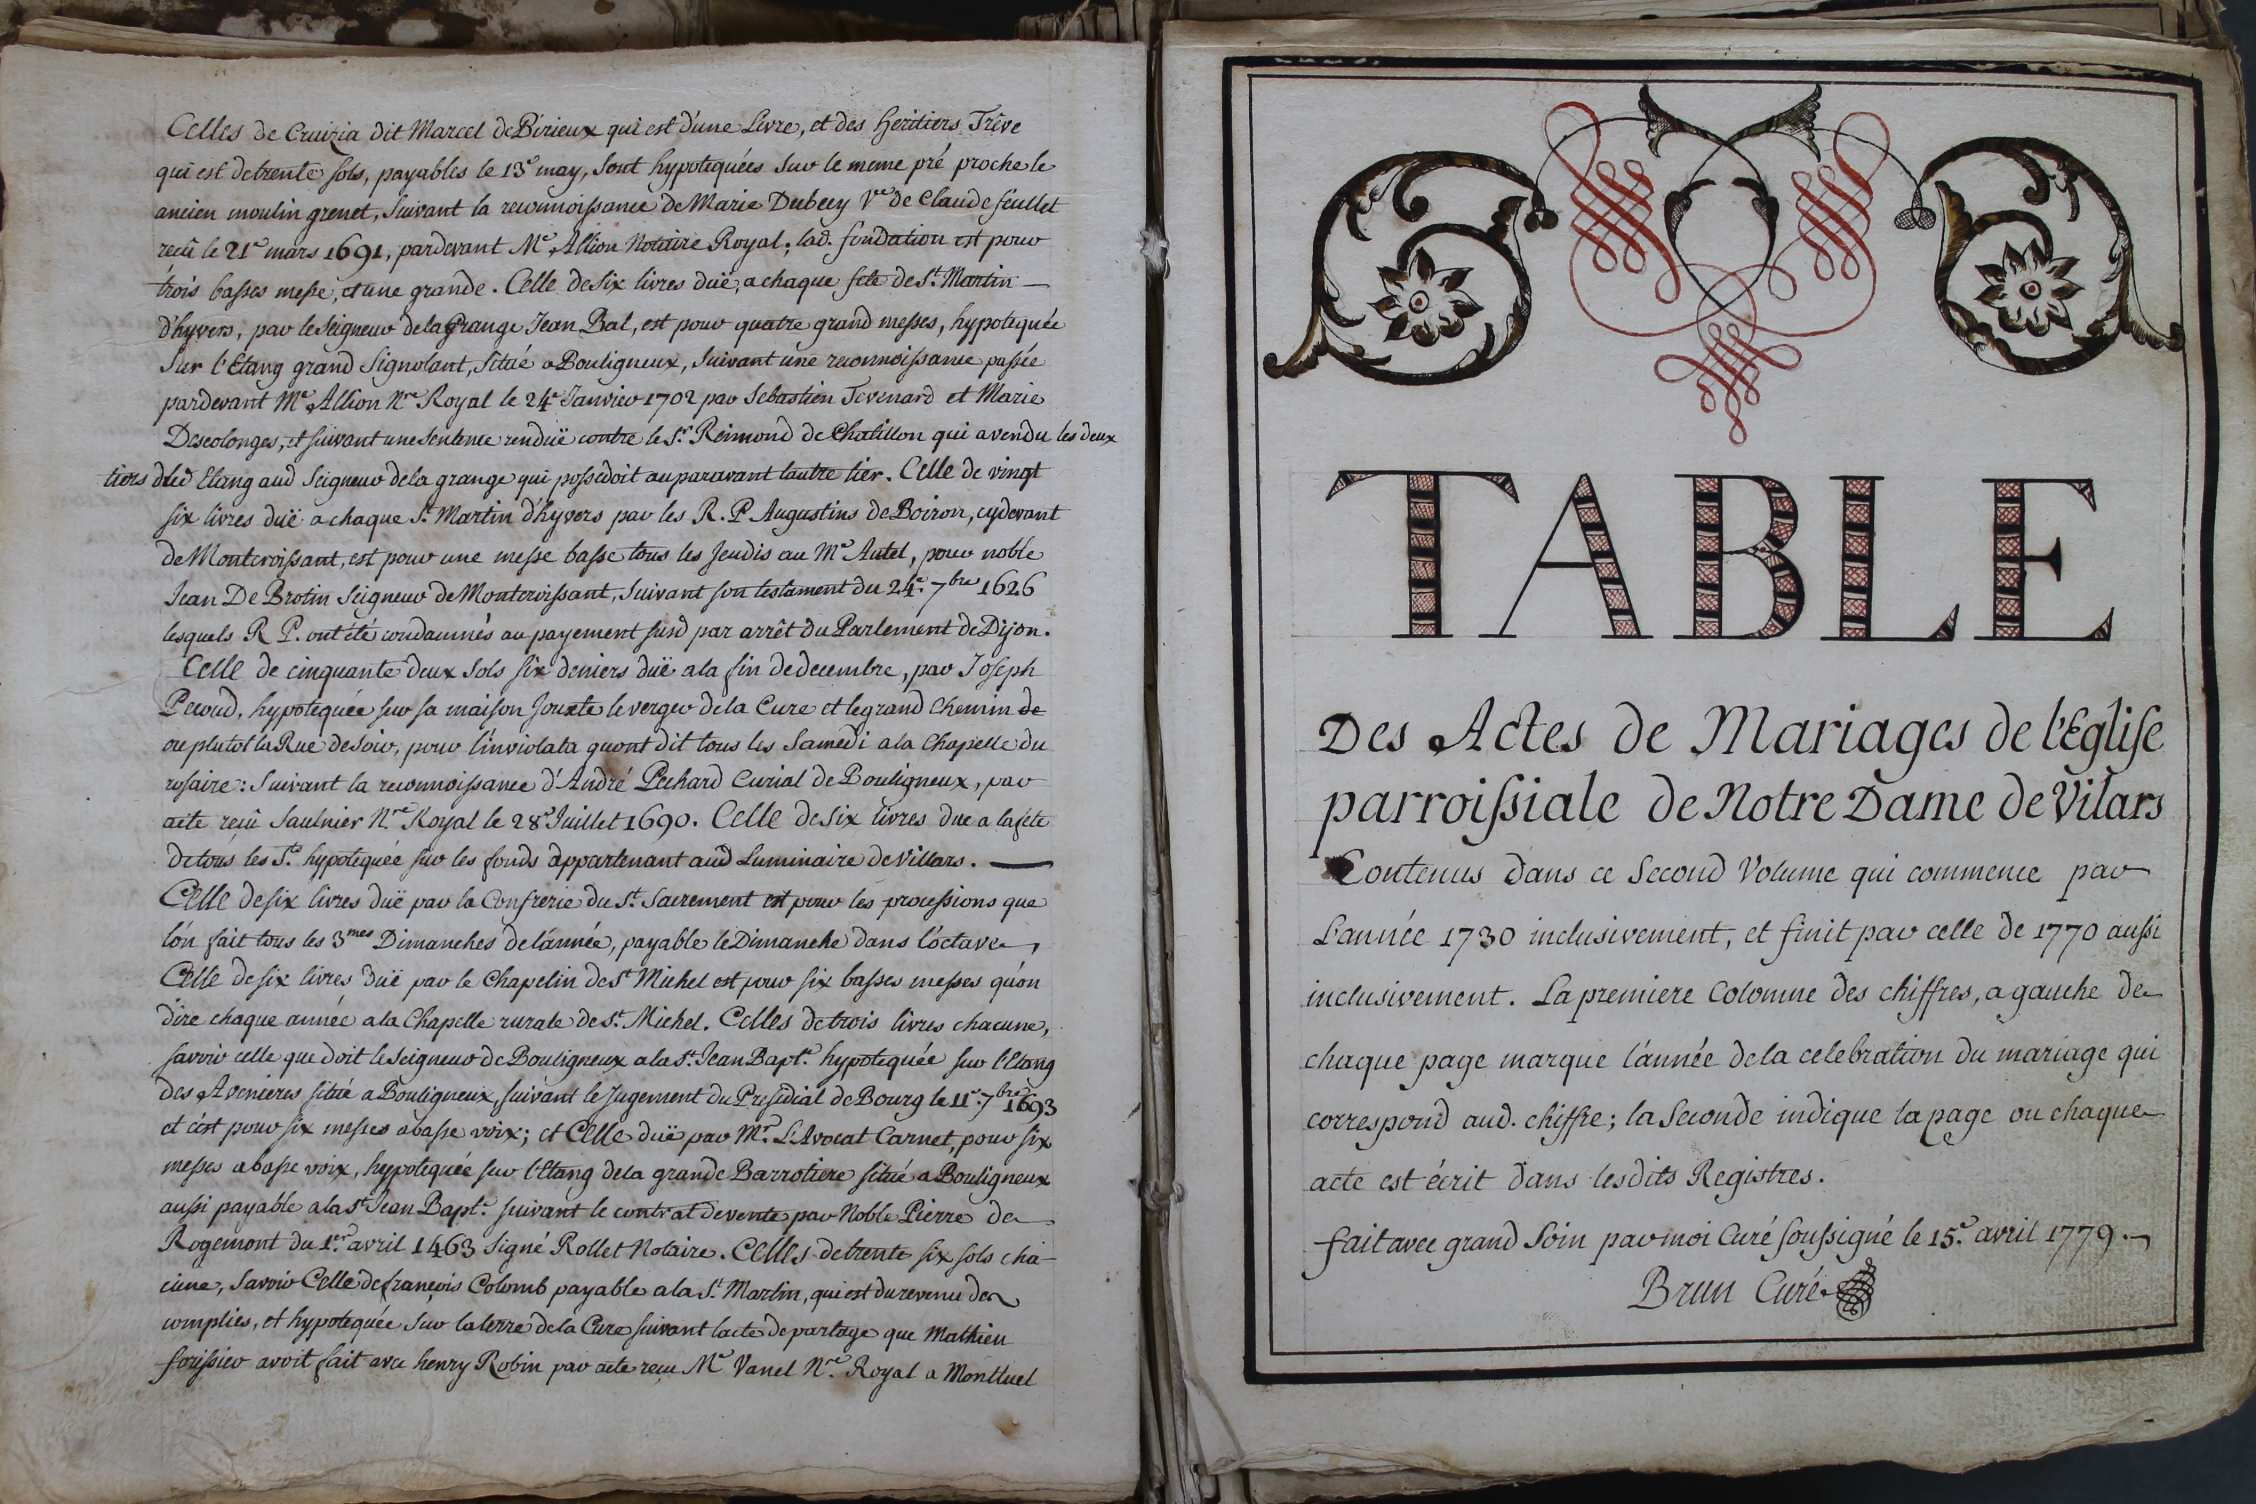 Celles de Cruizia dit Marcel de Bírieux qui est d'une Livre, et des Heritiers Trêve
qui est de trente sols, payables le 13e may, sont hypotequées sur le meme pré proche le
ancien moulin grenet, suivant la reconnoissance de Marie Dubecy Vee de Claude feullet
recû le 21e mars 1691, pardevant Me Allion Notaire Royal; lad. fondation est pour
trois basses messe, et une grande. Celle de six livres duë, a chaque fete de St Martin —
d'hyvers, par le Seigneur de la Grange Jean Bal, est pour quatre grand messes, hypotequée
sur l'Etang grand Signolant, situé a Bouligneux, suivant une reconnoissance passée
pardevant Me Allion Nre Royal le 24e Janvier 1702 par Sebastien Tevenard et Marie
Descolonges, et suivant une sentence renduë contre le Sr Reimond de Chatillon qui a vendu les deux
tiers dud Etang aud Seigneur de la grange qui possedoit auparavant lautre tier. Celle de vingt
six livres duë a chaque St Martin d'hyvers par les R. P Augustins de Boiron, cydevant
de Montcroissant, est pour une messe basse tous les Jeudis au Me Autel, pour noble
Jean De Brotin Seigneur de Montcroissant, suivant son testament du 24e 7bre 1626
lesquels R P. ont été condamnés au payement susd par arrêt du Parlement de Dijon.
Celle de cinquante deux sols six deniers duë a la fin de decembre, par Joseph
Peroud, hypotequée sur sa maison Jouxte le verger de la Cure et le grand Chemin de
ou plutot la Rue de soir, pour l'inviolata quont dit tous les Samedi a la Chapelle du
rosaire: suivant la reconnoissance d'André Pechard Curial de Bouligneux, par
acte reçû Saulnier Nre Royal le 28e Juillet 1690. Celle de six livres due a la fête
de tous les Sts hypotequée sur les fonds appartenant aud Luminaire de Villars. —
Celle de six livres duë par la Confrerie du St Sacrement est pour les processions que
lón fait tous les 3mes Dimanches de lánnée, payable le Dimanche dans lóctave,
Celle de six livres duë par le Chapelin de St Michel est pour six basses messes qu'on
dire chaque année a la Chapelle rurale de St Michel. Celles de trois livres chacune,
savoir celle que doit le Seigneur de Bouligneux a la St Jean Bapte hypotequée sur l'Etang
des Avenieres situé a Bouligneux, suivant le Jugement du Presidial de Bourg le 11e 7bre 1693
et c'est pour six messes a basse voix; et Celle duë par Mr L'Avocat Carnet, pour six
messes a basse voix, hypotequée sur l'Etang de la grande Barrotiere situé a Bouligneux
aussi payable a la St Jean Bapte suivant le contrat de vente par Noble Pierre de
Rogemont du 1er avril 1463 signé Rollet Notaire. Celles de trente six sols cha-
cune, Savoir Celle de françois Colomb payable a la St Martin, qui est du revenu de
complies, et hypotequée sur la terre de la Cure suivant lacte de partage que Mathieu
forissier avoit fait avec henry Robin par acte reçu Me Vanel Nre Royal a Montluel
TABLE
Des Actes de Mariages de l'Eglise
parroissiale de Notre Dame de Vilars
Contenus dans ce Second Volume qui commence par
L'année 1730 inclusivement, et finit par celle de 1770 aussi
inclusivement. La premiere Colomne des chiffres, a gauche de
chaque page marque l'année de la celebration du mariage qui
correspond aud. chiffre; la Seconde indique la page ou chaque
acte est écrit dans lesdits Registres.
fait avec grand Soin par moi Curé soussigné le 15e avril 1779.
Brun Curé